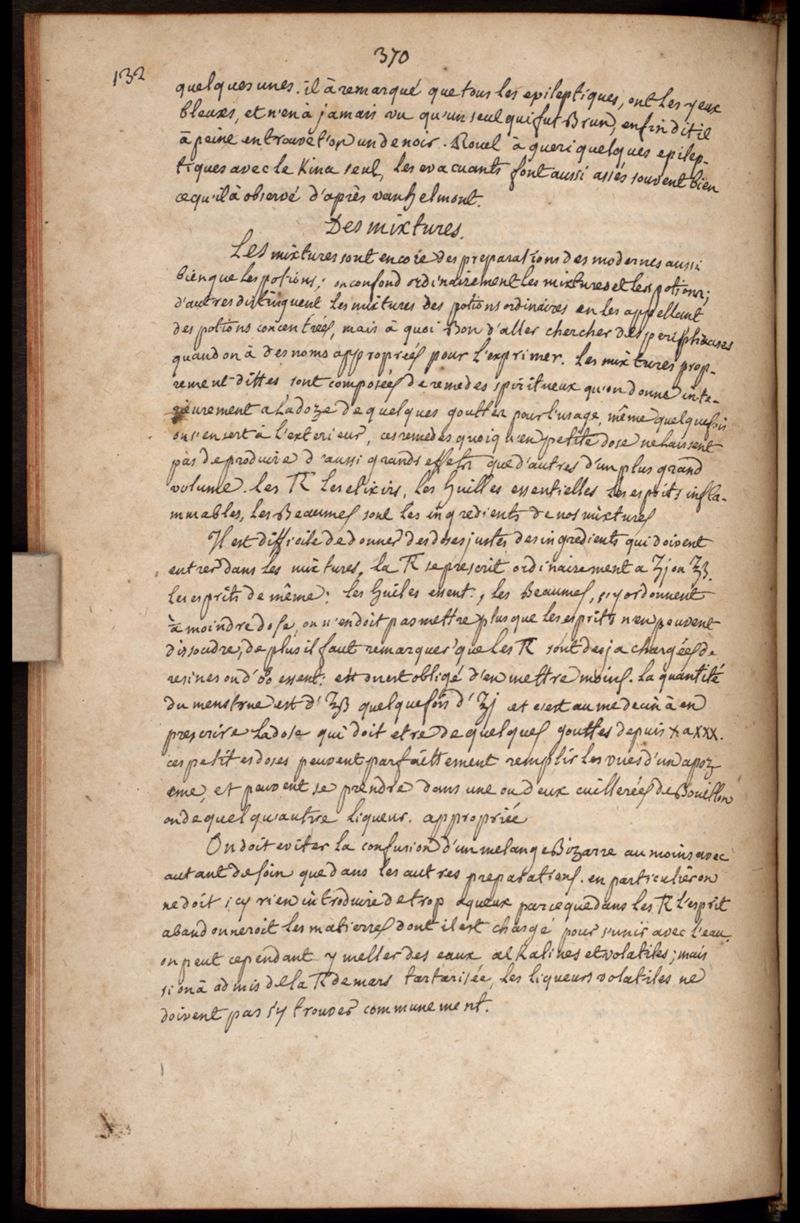 370
132
quelques unes. il à remarqué que tous les epileptiques, ont les yeux
bleues, et n'en à jamais vu qu'un seul qui fut Brun, enfin dit il
à peine en trouvet'on un de noir. Rouel à queri quelques epilep-
tiques avec le Kina seul, les evacuants font aussi assés souvent bien
ce qu'il à observé d'après vanhelmont.
Des mixtures.
Les mixtures sont encore des preparations des modernes aussi
bien que les potions; on confond ordinairement les mixtures et les potions;
d'autres distinguent les mixtures des potions ordinaires en les appellant
des potions concentrées, mais à quoi Bon d'aller chercher des periphrases
quand on à des noms appropreés pour l'exprimer. Les mixtures prop-
rement dittes sont composées de remedes spiritueux qu'on donne inte-
rieurement a la doze de quelques gouttes pour l'usage, même quelquefois
on s'en sert à l'exterieur, ces remedes quoiqu'en petite dose ne laissent
pas de produire d'aussi grands effets que d'autres d'un plus grand
volume. Les TR les elixirs, les huilles essentielles les esprits infla-
mmables, les Beaumes sont les ingredients de nos mixtures
Il est difficile de donner des doses justes des ingredients qui doivent
entrer dans les mixtures, la TR se prescrit ordinairement a ʒj ou ʒß.
les esprits de même: les huiles essent:, les Beaumes, s'y ordonnent
à moindre dose, on n'en doit pas mettre plus que les esprits n'en peuvent
dissoudre; de plus il faut remarquer que les TR sont deja chargées de
resines ou d'oo essent: et on est obligé d'en mettre moins. la quantité
du menstrue est d'ʒß quelquefois d'ʒj et c'est au medecin à en
prescrire la dose qui doit etre de quelques gouttes depuis X a XXX.
ces petites doses peuvent parfaittement remplir les vues d'un apoz
eme, et peuvent se prendre dans une ou deux cuillerées de Bouillon
ou de quelqu'autre liqueur. appropriée
On doit eviter la confusion d'un melange Bizarre au moins avec
autant de soin que dans les autres preparations. en particulier on
ne doit icy rien introduire de trop aqueux parceque dans les TR l'esprit
abandonneroit les matieres dont il est chargé pour s'unir avec l'eau.
on peut cependant y meller des eaux alkalines et volatiles; mais
si on à admis de la TR de mars tartarisée, les liqueurs volatiles ne
doivent pas s'y trouver communement.